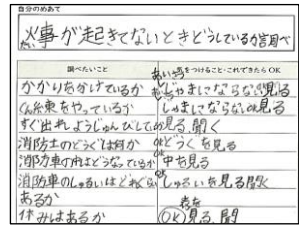 自分のめあて
火事が起きてないときどうしているか調べ
調べたいこと
気をつけること・これができたらOK
かかりをかけているか
じゃまにならない見る
くん練をやっているか
じゃまにならない見る
すぐ出れようじゅんびして
見る、聞く
消防士のどうぐは何か
どうぐを見る
消防車の中はどうなっているか
中を見る
消防車のしゅるいはどれぐらい
しゅるいを見る聞く
あるか
休みはあるか
OK 見る、聞